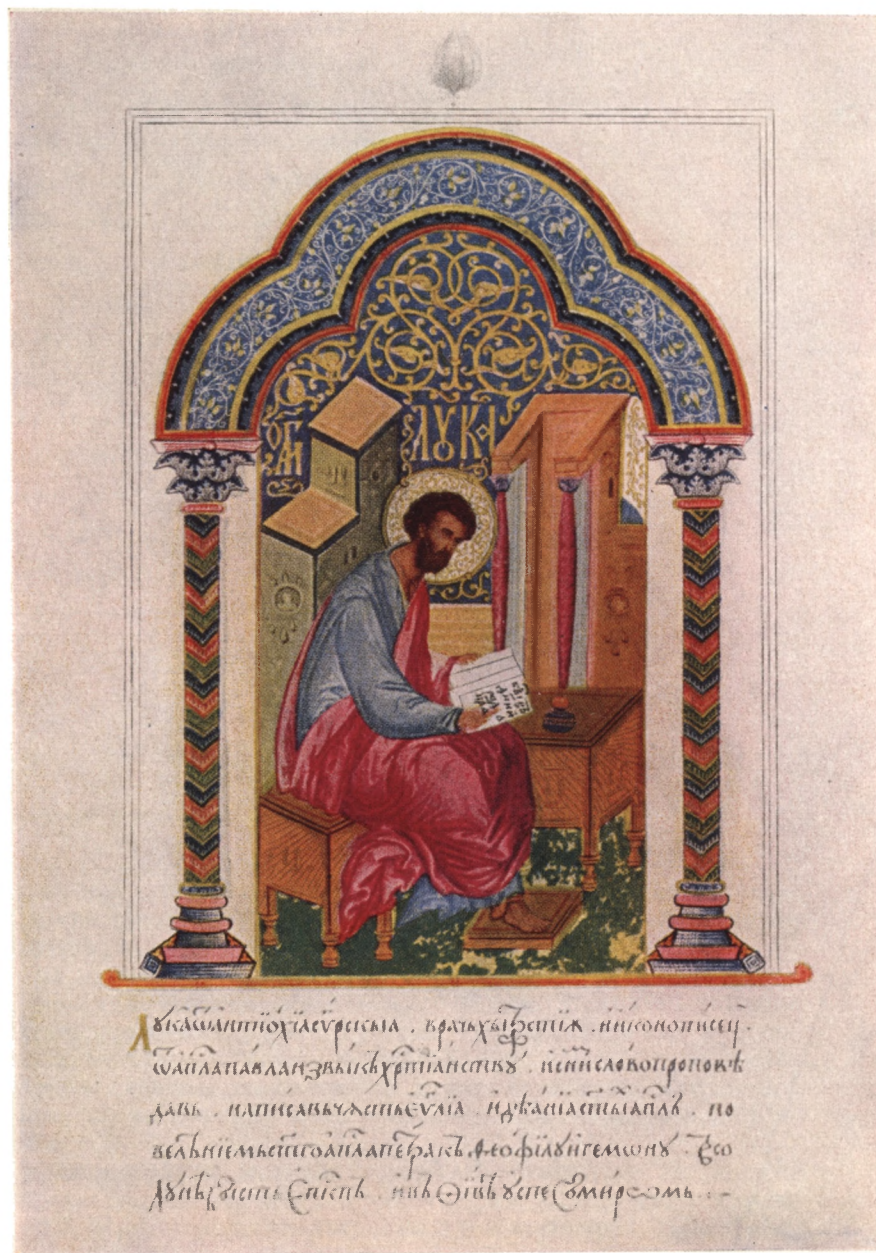 ЛꙊКА
Лꙋка ѿ антїохїа сѵрскыѧ . врачь хытростїѫ . и иконописец .
ѿ ап҃ла павла извыкъ хр҃тїанствꙋ . и с ним слово проповѣ
давъ . написавь чѧсть еѵ҃лїа и дѣанїа ст҃ы ап҃лъ . по
велѣнїемь ст҃го ап҃ла петра къ Ѳеофїлꙋ игемѡнꙋ .
и въ Ѳївѣ ꙋспе